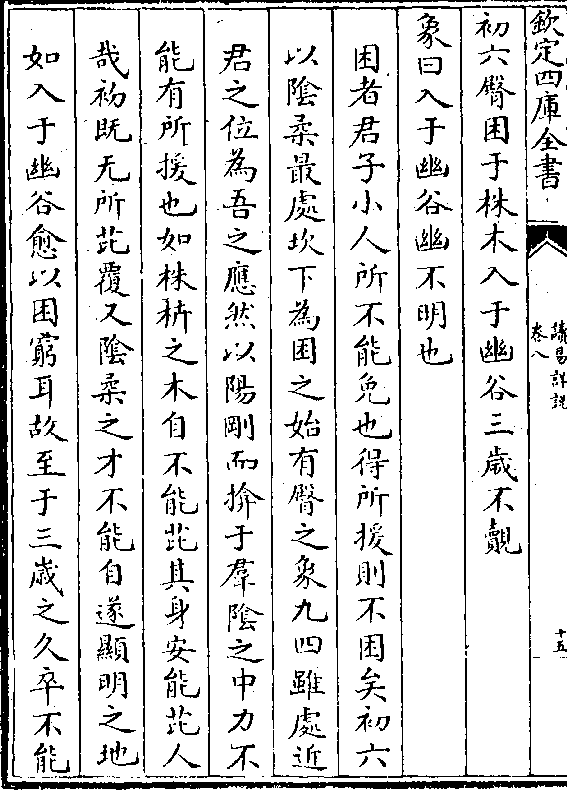 欽定四庫全書
讀易詳說
卷八
十五
初六臀困于株木入于幽谷三歲不覿
象曰入于幽谷幽不明也
困者君子小人所不能免也得所援則不困矣初六
以陰柔最處坎下為困之始有臀之象九四雖處近
君之位為吾之應然以陽剛而揜于羣陰之中力不
能有所援也如株枿之木自不能芘其身安能芘人
哉初既无所芘覆又陰柔之才不能自遂顯明之地
如入于幽谷愈以困窮耳故至于三歲之久卒不能